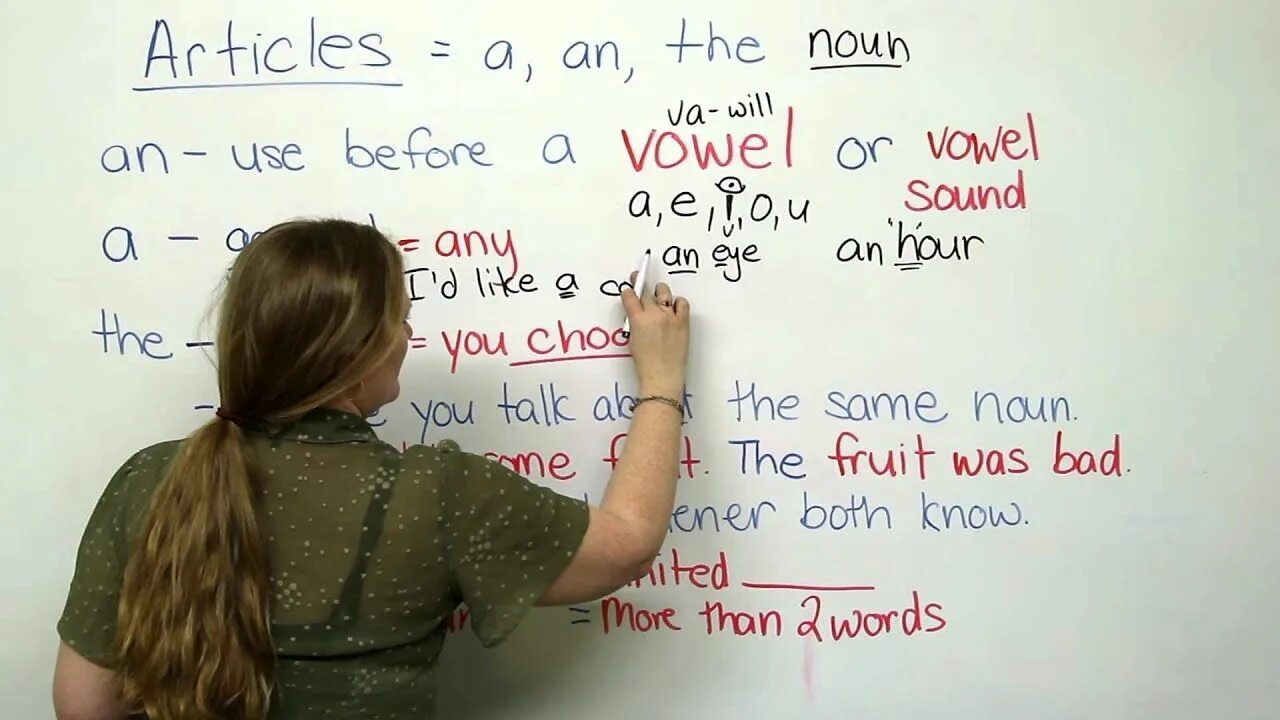 Articles = a, an, the noun
va-will
an - use before a vowel or vowel
sound
a, e, i, o, u
a - = any
an eye an 'hour
I'd like a
the - = you
- you talk the same noun.
The fruit was bad.
both know.
= More than 2 words